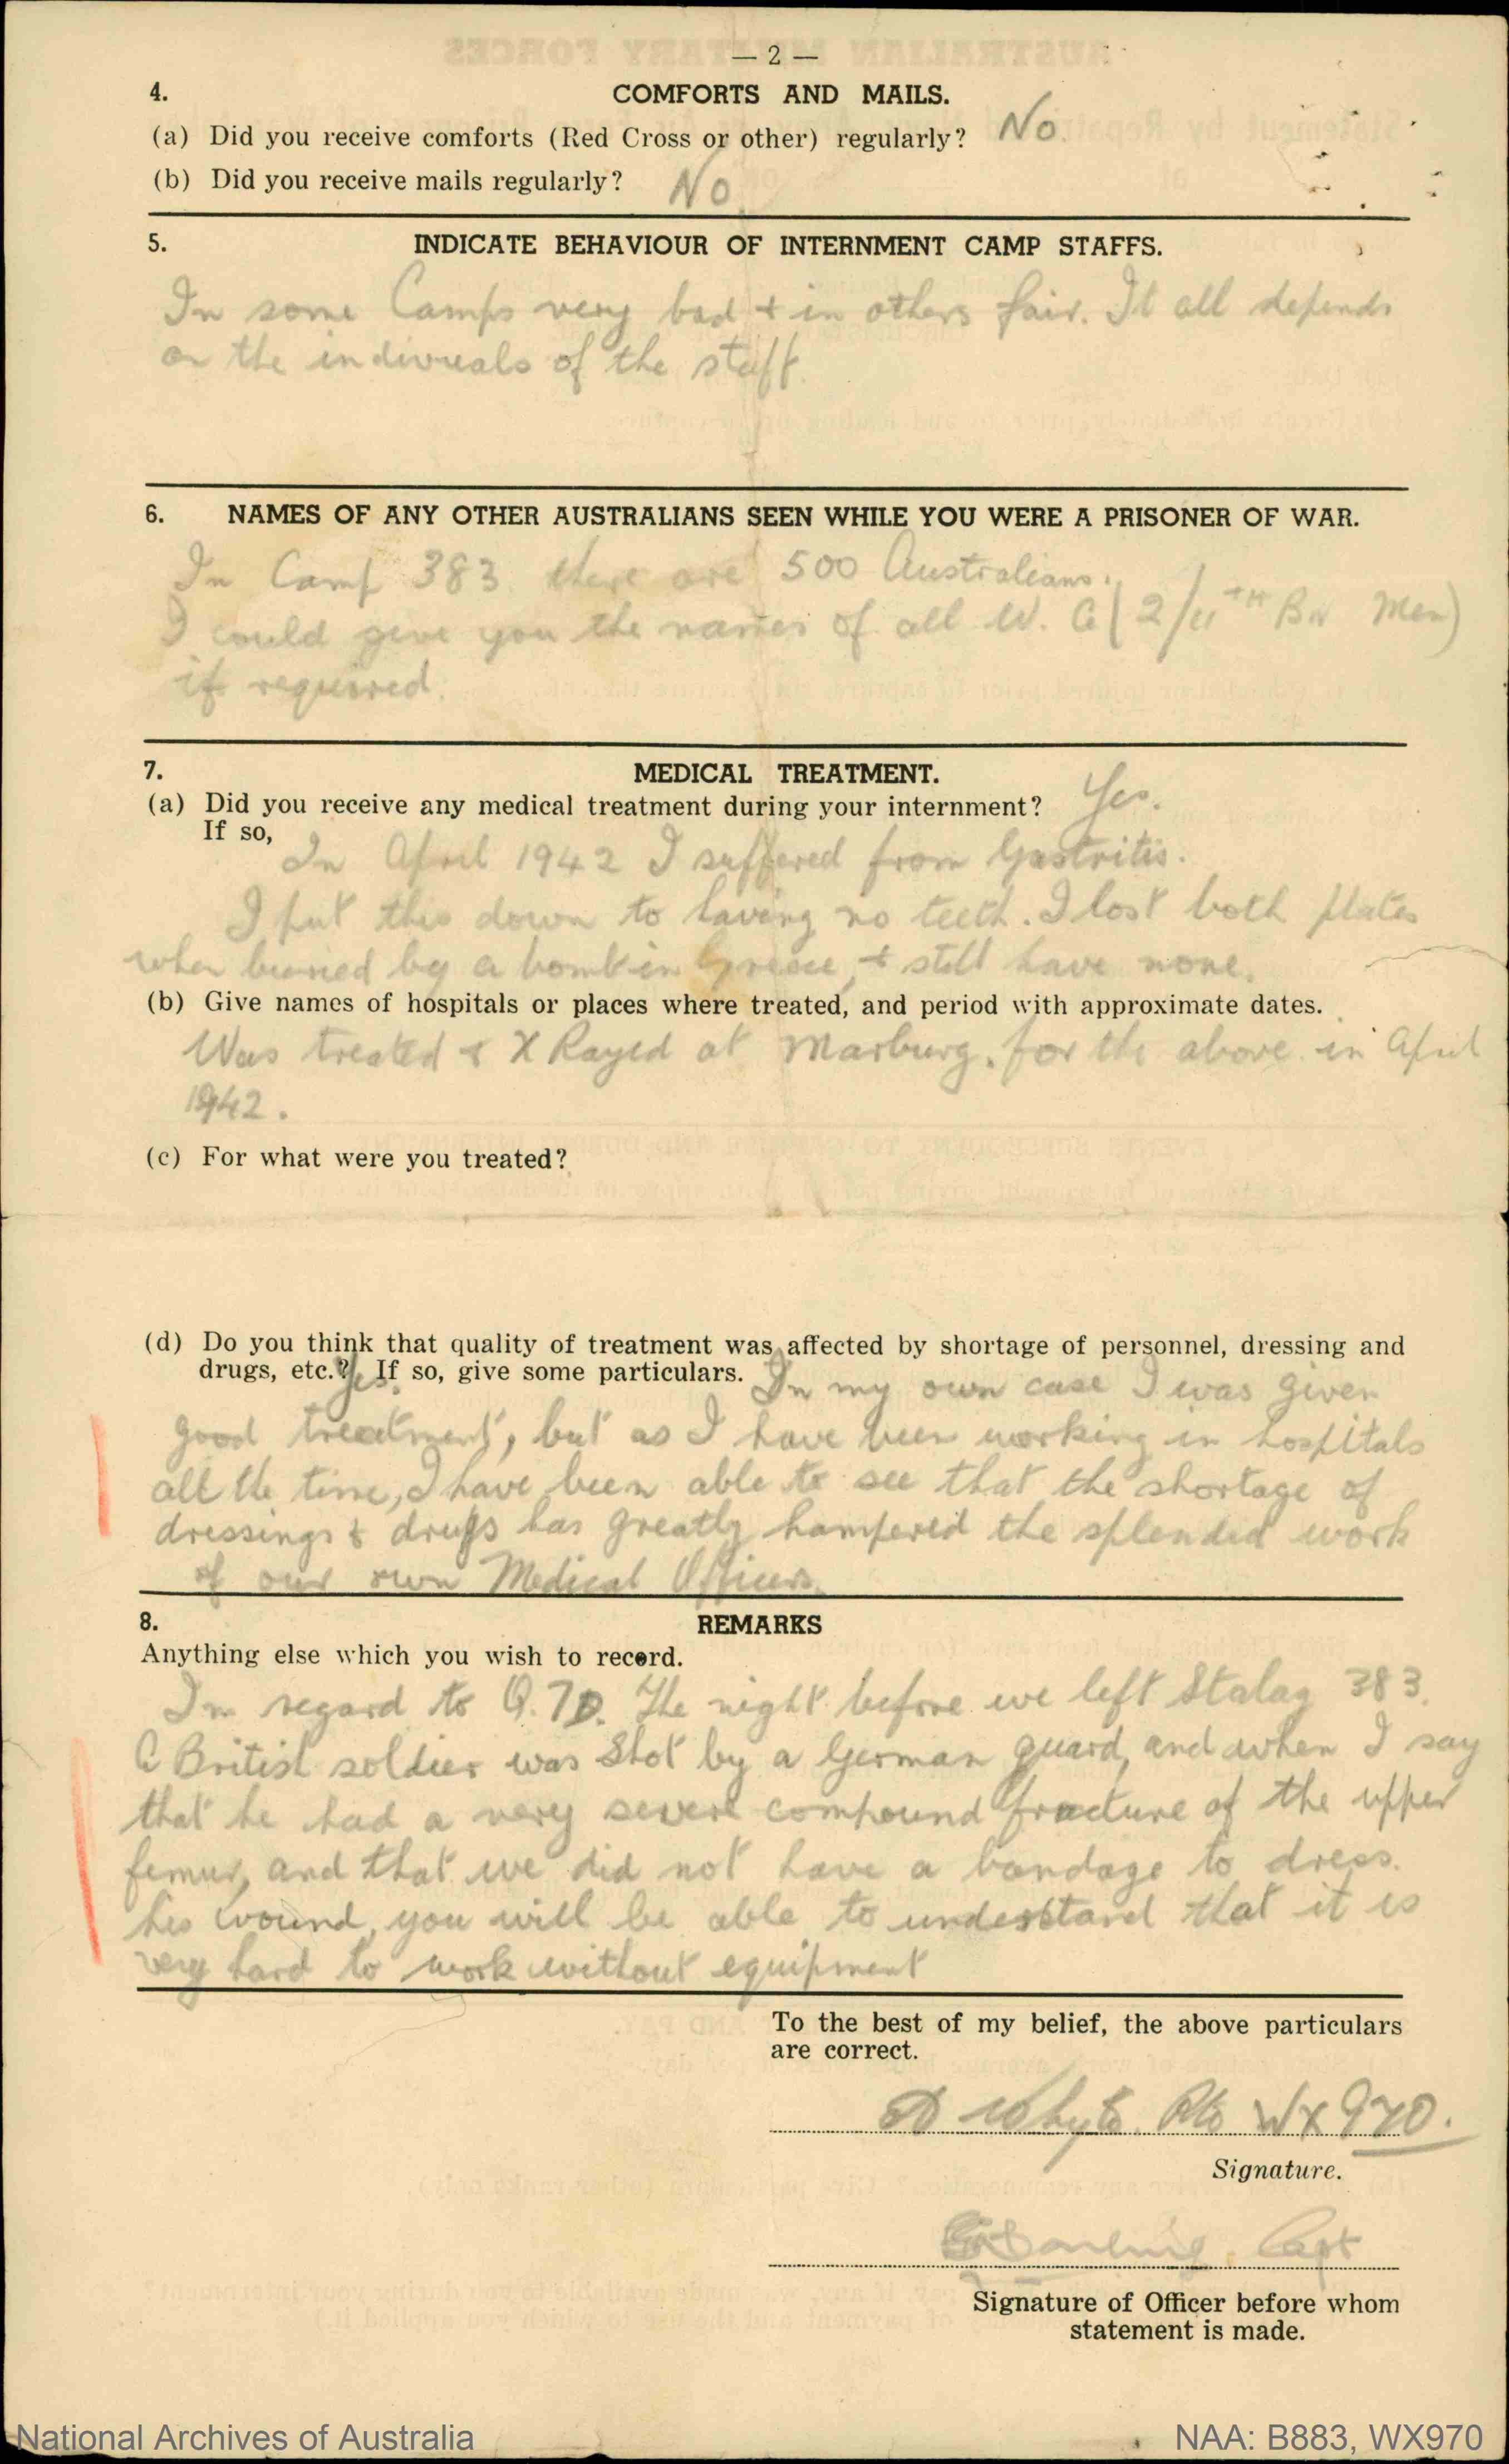 — 2 —
4. COMFORTS AND MAILS.
(a) Did you receive comforts (Red Cross or other) regularly? No.
(b) Did you receive mails regularly? No
5. INDICATE BEHAVIOUR OF INTERNMENT CAMP STAFFS.
In some Camps very bad & in others fair. It all depends
on the indivuals of the staff.
6. NAMES OF ANY OTHER AUSTRALIANS SEEN WHILE YOU WERE A PRISONER OF WAR.
In Camp 383 there are 500 Australians.
I could give you the names of all W. A (2/11TH BN Men)
if required.
7. MEDICAL TREATMENT.
(a) Did you receive any medical treatment during your internment? Yes.
If so,
In April 1942 I suffered from Gastritis.
I put this down to having no teeth. I lost both plates
when buried by a bomb in Greece, & still have none.
(b) Give names of hospitals or places where treated, and period with approximate dates.
Was treated & X Rayed at Marburg. for the above in April
1942.
(c) For what were you treated?
(d) Do you think that quality of treatment was affected by shortage of personnel, dressing and
drugs, etc.? Yes. If so, give some particulars. In my own case I was given
good treatment, but as I have been working in hospitals
all the time, I have been able to see that the shortage of
dressings & drugs has greatly hampered the splended work
of our own Medical Officers.
8. REMARKS
Anything else which you wish to record.
In regard to Q. 7D. The night before we left Stalag 383.
A British soldier was shot by a German guard, and when I say
that he had a very severe compound fracture of the upper
femur, and that we did not have a bandage to dress.
his wound, you will be able to understand that it is
very hard to work without equipment
To the best of my belief, the above particulars
are correct.
D Whyte. Pte WX970.
Signature.
Darling. Capt
Signature of Officer before whom
statement is made.
National Archives of Australia
NAA: B883, WX970